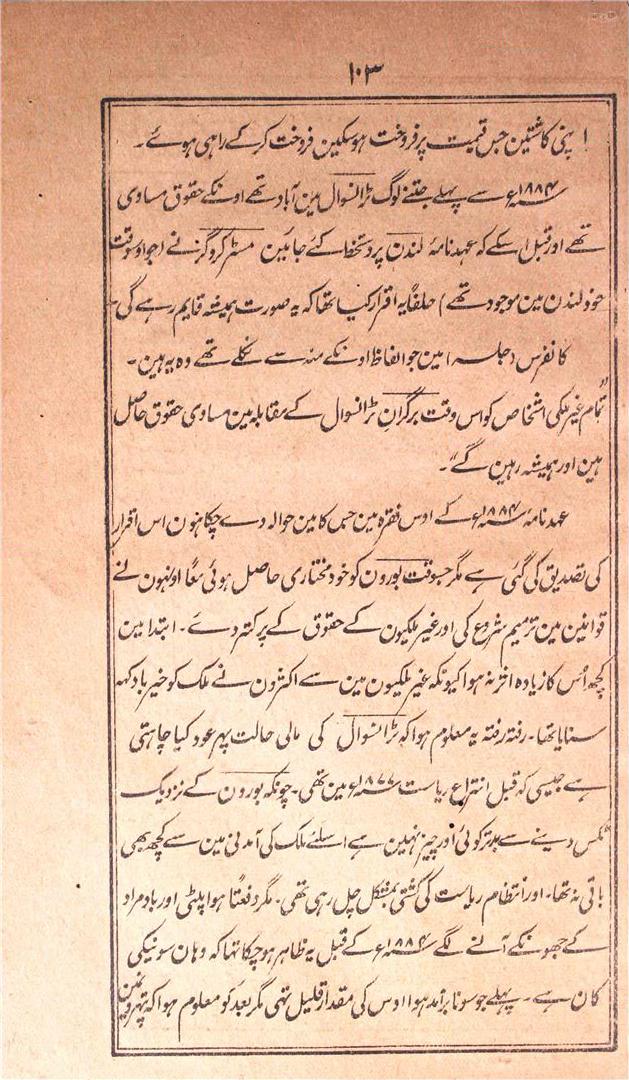 ۱۰۳
اپنی کاشتین جس قیمت پر فروخت ہوسکین فروخت کرکے راہی ہوئے۔
سنہ۱۸۸۴ع سے پہلے جتنے لوگ ٹرانسوال مین آباد تھے اونکے حقوق مساوی
تھے اور قبل اسکے کہ عہدنامۂ لندن پر دستخط کئے جائین مسٹر کروگر نے (جو اوسوقت
خود لندن مین موجود تھے) حلفاً یہ اقرار کیا تھا کہ یہ صورت ہمیشہ قایم رہے گی۔
کانفرس (جلسہ) مین جو الفاظ اونکے منہ سے نکلے تھے وہ یہ ہین۔
"تمام غیر ملکی اشخاص کو اس وقت برگران ٹرانسوال کے مقابلہ مین مساوی حقوق حاصل
ہین اور ہمیشہ رہین گے"۔
عہدنامۂ سنہ۱۸۸۴ع کے اوس فقرہ مین جس کا مین حوالہ دے چکا ہون اس اقرار
کی تصدیق کی گئی ہے مگر جسوقت بورون کو خود مختاری حاصل ہوئی معاً اونہون نے
قوانین مین ترمیم شروع کی اور غیر ملکیون کے حقوق کے پر کتر دے۔ ابتدا مین
کچھ اُس کا زیادہ اثر نہ ہوا کیونکہ غیر ملکیون مین سے اکثرون نے ملک کو خیرباد کہہ
سنایا تھا۔ رفتہ رفتہ یہ معلوم ہوا کہ ٹرانسوال کی مالی حالت پہر عود کیا چاہتی
ہے جیسی کہ قبل انتزاع ریاست سنہ۱۸۷۷ع مین تھی۔ چونکہ بورون کے نزدیک
ٹکس دینے سے بدتر کوئی اَور چیز نہین ہے اسلئے ملک کی آمدنی مین سے کچھ بھی
باقی نہ تھا۔ اور انتظام ریاست کی کشتی بمشکل چل رہی تھی۔ مگر دفعتاً ہوا پلٹی اور باد مراد
کے جھونکے آنے لگے سنہ۱۸۸۴ع کے قبل یہ ظاہر ہوچکا تہا کہ وہان سونیکی
کان ہے۔ پہلے جو سونا برآمد ہوا اوس کی مقدار قلیل تہی مگر بعد کو معلوم ہوا کہ